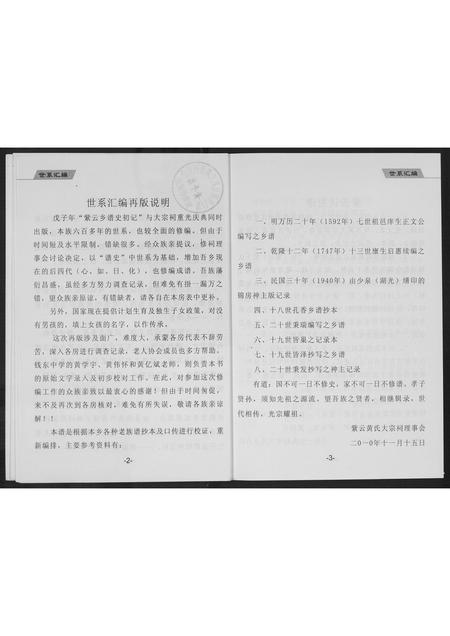 世系汇编
世系汇编再版说明
戊子年“紫云乡谱史初记”与大宗祠重光庆典同时
出版，本族六百多年的世系，也较全面的修编。但由于
时间短及水平限制，错缺很多。经众族亲提议，修祠理
事会讨论决定，以“谱史”中世系为基础，增加吾乡现
在的后四代（心、如、日、化），也修编成谱。吾族藩
衍昌盛，虽经多方努力调查记录，但难免有挂一漏万之
错，望众族亲原谅，有错缺者，请各自在本房表中更补。
另外，国家现在提倡计划生育及独生子女政策，对没
有男孩的，填上女孩的名字，以作传承。
这次再版涉及面广，难度大，承蒙各房代表不辞劳
苦，深入各房进行调查记录，老人协会成员也多方帮助。
钱东中学的黄学宇、黄伟怀和黄亿斌老师，则负责本书
的原始文字录入及初步校对工作。在此，对参加这次修
编工作的众族亲致以最衷心的感谢！但由于时间匆促，
来不及再次到各房核对，难免有所失误，敬请各族亲谅
解！
本谱是根据本乡各种老族谱抄本及口传进行校证，重
新编排，主要参考资料有：
-2-
世系汇编
一、明万历二十年（1592年）七世祖邑庠生正文公
编写之乡谱
二、乾隆十二年（1747年）十三世廪生启惠续编之
乡谱
三、民国三十年（1940年）由少泉（湖光）缮印的
锦房神主版记录
四、十八世孔香乡谱抄本
五、二十世秉瑞编写之乡谱
六、十九世皆巢之记录本
七、十九世皆泽抄写之乡谱
八、二十世秉发抄写之神主记录
有道：国不可一日不修史，家不可一日不修谱，孝子
贤孙，须知先祖之源流，望吾族之贤者，相继辑录，世
代相传，光宗耀祖。
紫云黄氏大宗祠理事会
二○一○年十一月十五日
-3-